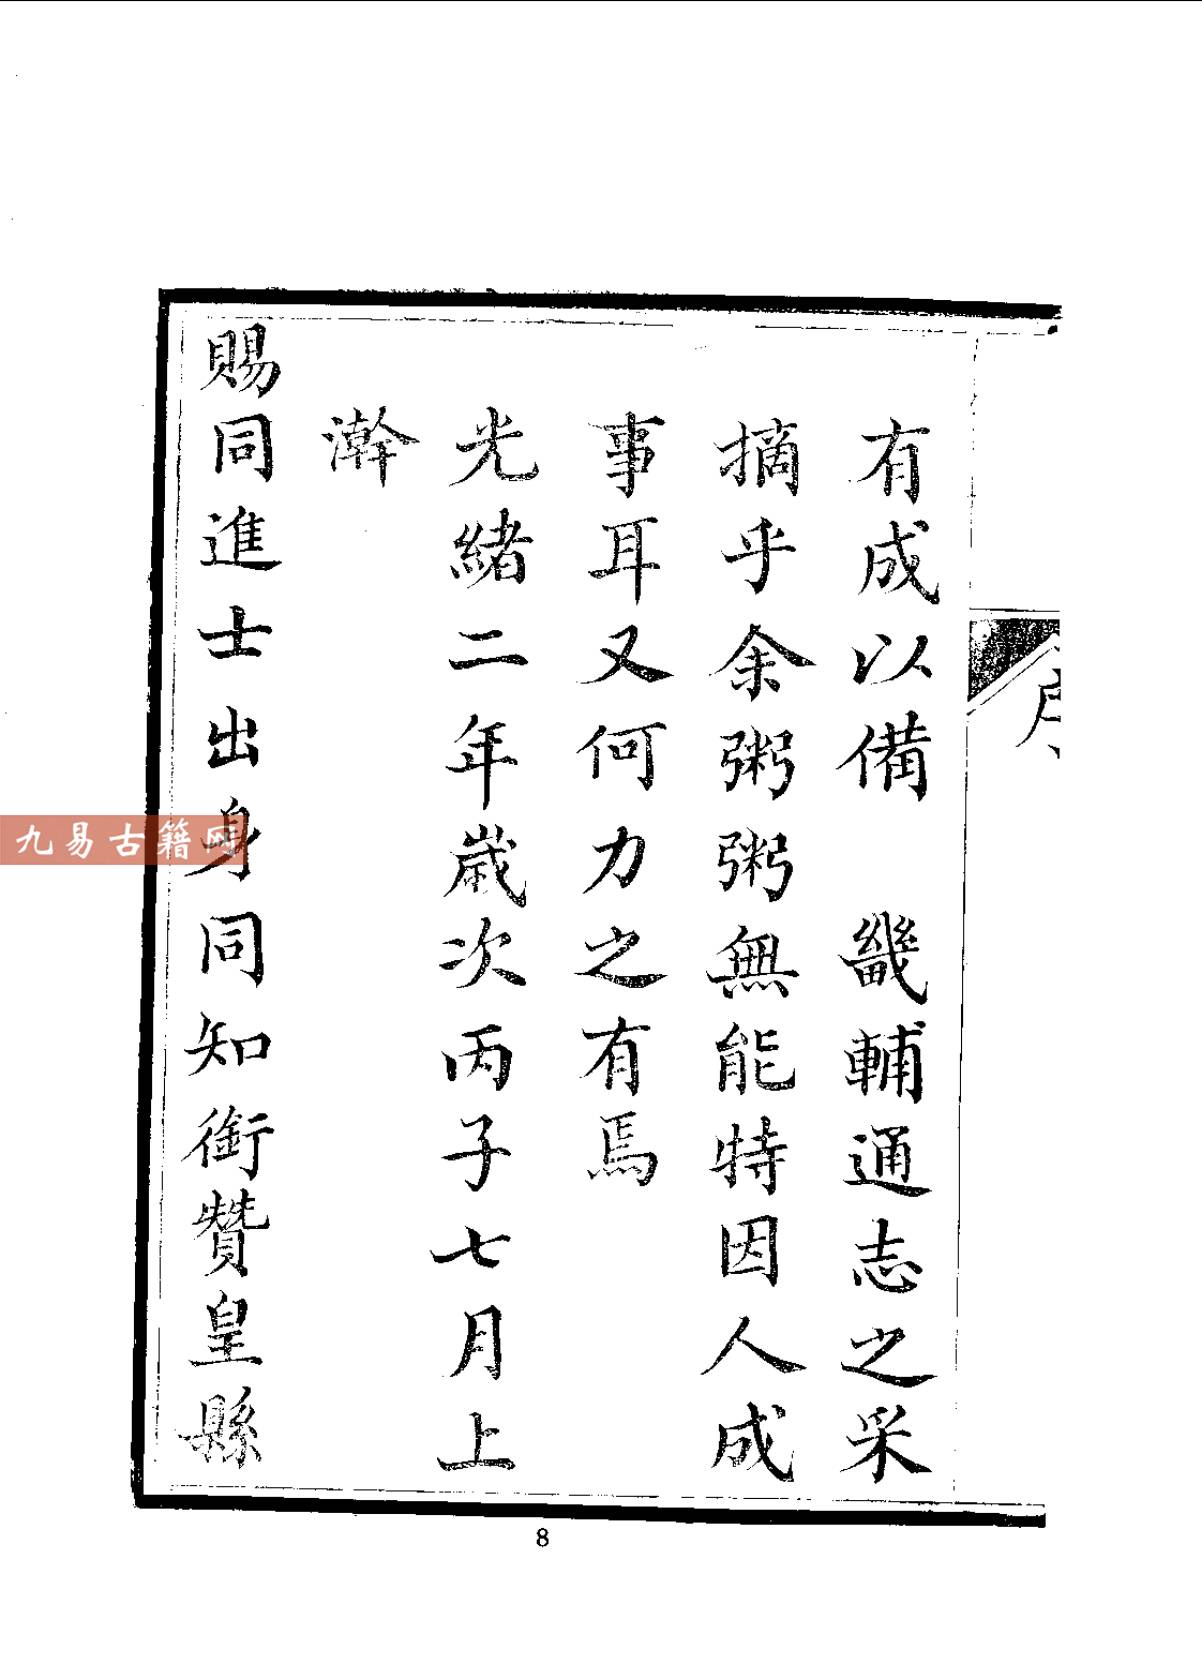 序
有成以備　畿輔通志之采
摘乎余粥粥無能特因人成
事耳又何力之有焉
光緒二年歲次丙子七月上
澣
賜同進士出身同知銜贊皇縣
九易古籍网
8